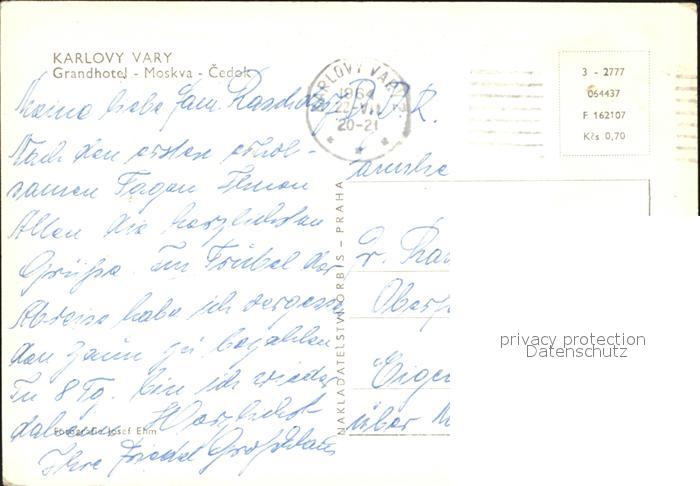 KARLOVY VARY
Grandhotel - Moskva - Čedok
KARLOVY VARY 2
1964
22.VII
20-21
3 - 2777
064437
F 162107
Kčs 0,70
Meine liebe Fam.
D.D.R.
Nach den ersten erhol-
samen Tagen Ihnen
Allen die herzlichsten
Grüße. Im Trubel der
Abreise habe ich vergessen
den Zaun zu bezahlen.
In 8 Tg. bin ich wieder
Herzlichst
Ihre Friedel
Fotografie Josef Ehm
NAKLADATELSTVÍ ORBIS - PRAHA
Familie
Oberp
Eigen
über
privacy protection
Datenschutz